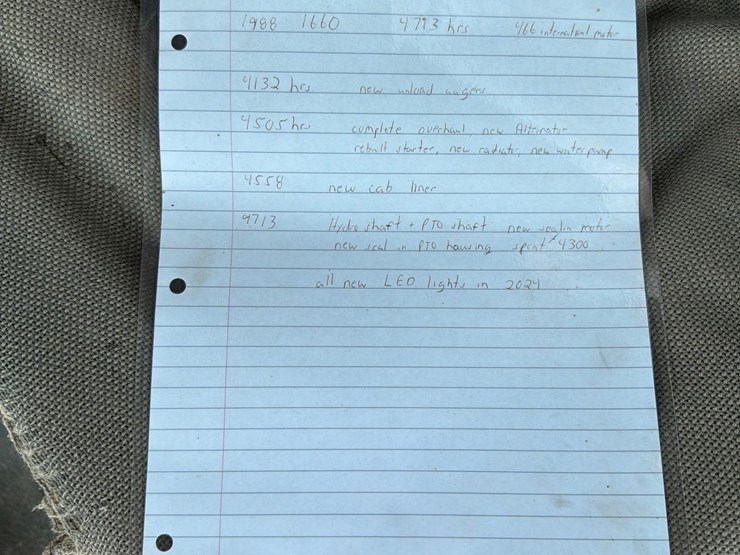 1988 1660 4793 hrs 466 international motor
4132 hrs new unload augers
4505 hrs complete overhaul new Alternator
rebuilt starter, new radiator, new water pump
4558 new cab liner
4713 Hydro shaft + PTO shaft new seal in motor
new seal in PTO housing spent $4300
all new LED lights in 2024